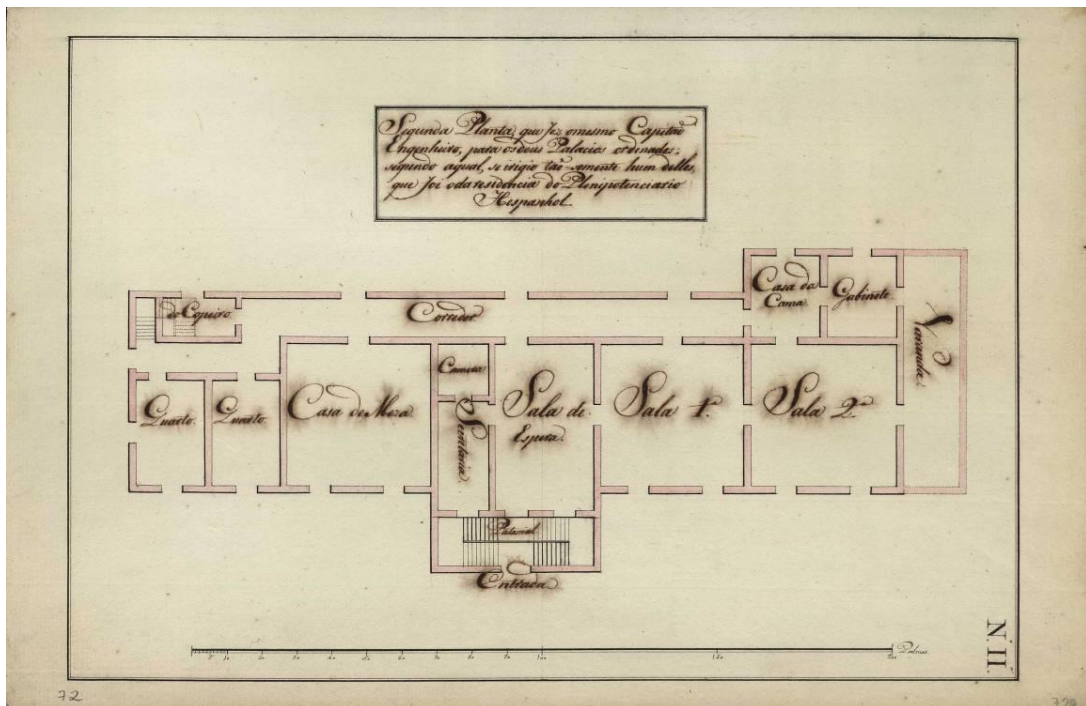 Segunda Planta, que fez o mesmo Capitaõ
Engenheiro, para os dous Palacios ordenados;
segundo aqual, se irigio taõ-somente hum delles,
que foi o da residencia do Plenipotenciario
Hespanhol.
do Copeiro.
Corredor
Casa da
Cama.
Gabinete
Varanda.
Quarto.
Quarto.
Casa de Meza
Camera
Secretaria
Sala de
Espera.
Sala 1ª
Sala 2ª
Patamal
Entrada
5 10 20 30 40 50 60 70 80 90 100 150 200 Palmos.
N. II.
72